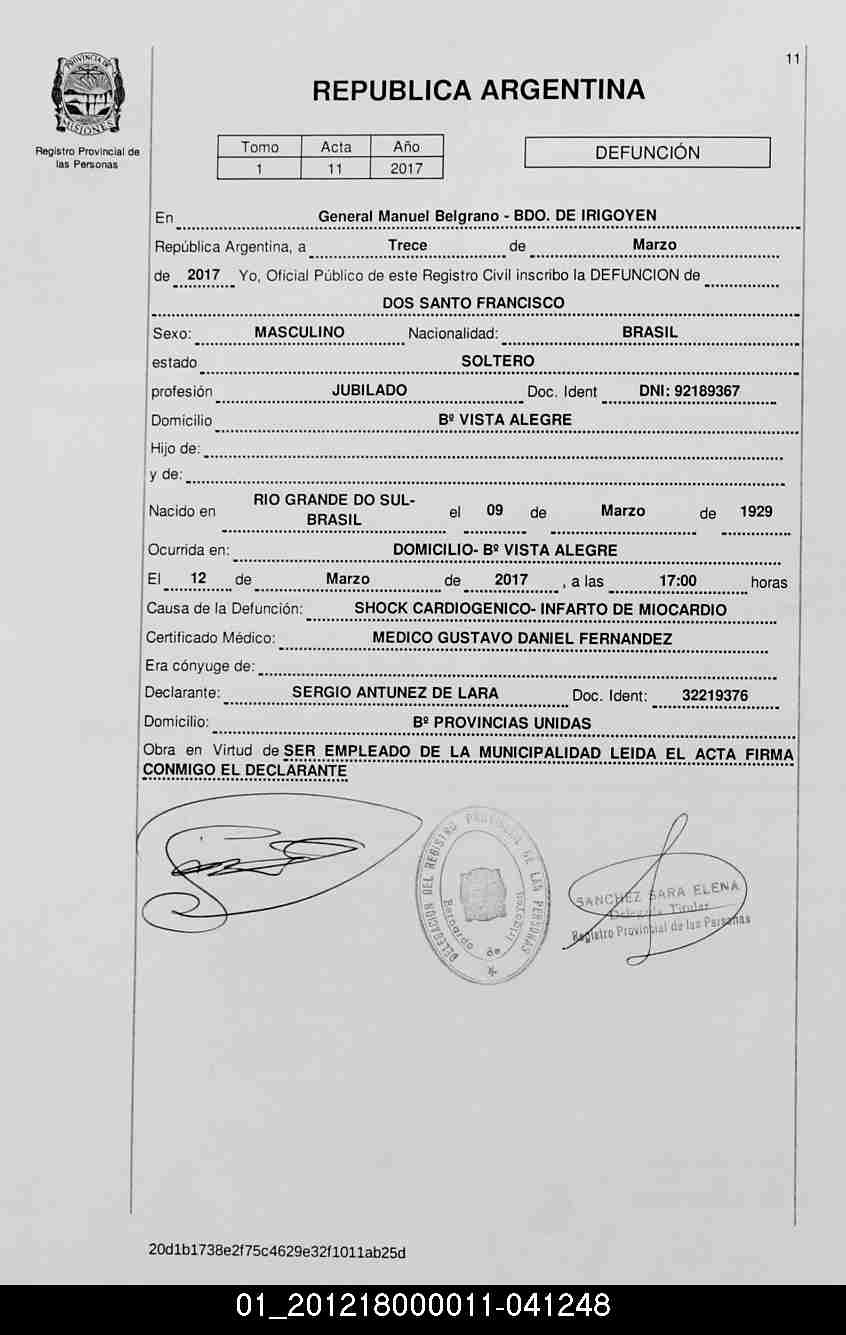 11
PROVINCIA DE
MISIONES
Registro Provincial de
las Personas
REPUBLICA ARGENTINA
Tomo Acta Año
1 11 2017
DEFUNCIÓN
En General Manuel Belgrano - BDO. DE IRIGOYEN
República Argentina, a Trece de Marzo
de 2017 Yo, Oficial Público de este Registro Civil inscribo la DEFUNCION de
DOS SANTO FRANCISCO
Sexo: MASCULINO Nacionalidad: BRASIL
estado SOLTERO
profesión JUBILADO Doc. Ident DNI: 92189367
Domicilio Bº VISTA ALEGRE
Hijo de:
y de:
Nacido en RIO GRANDE DO SUL-
BRASIL el 09 de Marzo de 1929
Ocurrida en: DOMICILIO- Bº VISTA ALEGRE
El 12 de Marzo de 2017 , a las 17:00 horas
Causa de la Defunción: SHOCK CARDIOGENICO- INFARTO DE MIOCARDIO
Certificado Médico: MEDICO GUSTAVO DANIEL FERNANDEZ
Era cónyuge de:
Declarante: SERGIO ANTUNEZ DE LARA Doc. Ident: 32219376
Domicilio: Bº PROVINCIAS UNIDAS
Obra en Virtud de SER EMPLEADO DE LA MUNICIPALIDAD LEIDA EL ACTA FIRMA
CONMIGO EL DECLARANTE
DELEGACION DEL REGISTRO PROVINCIAL DE LAS PERSONAS
Bernardo de Irigoyen
SANCHEZ SARA ELENA
Delegada Titular
Registro Provincial de las Personas
20d1b1738e2f75c4629e32f1011ab25d
01_201218000011-041248